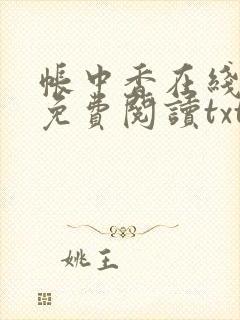 帳中香在綫
免費閱讀txt
姚王